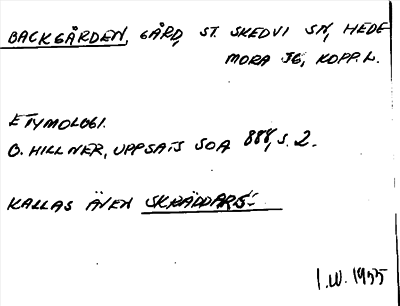 BACKGÅRDEN, GÅRD, ST. SKEDVI SN, HEDE
MORA JG, KOPP. L.
ETYMOLOGI.
O. HILLNER, UPPSATS SOA 888, S. 2.
KALLAS ÄVEN SKRÄDDARS
I.W. 1955